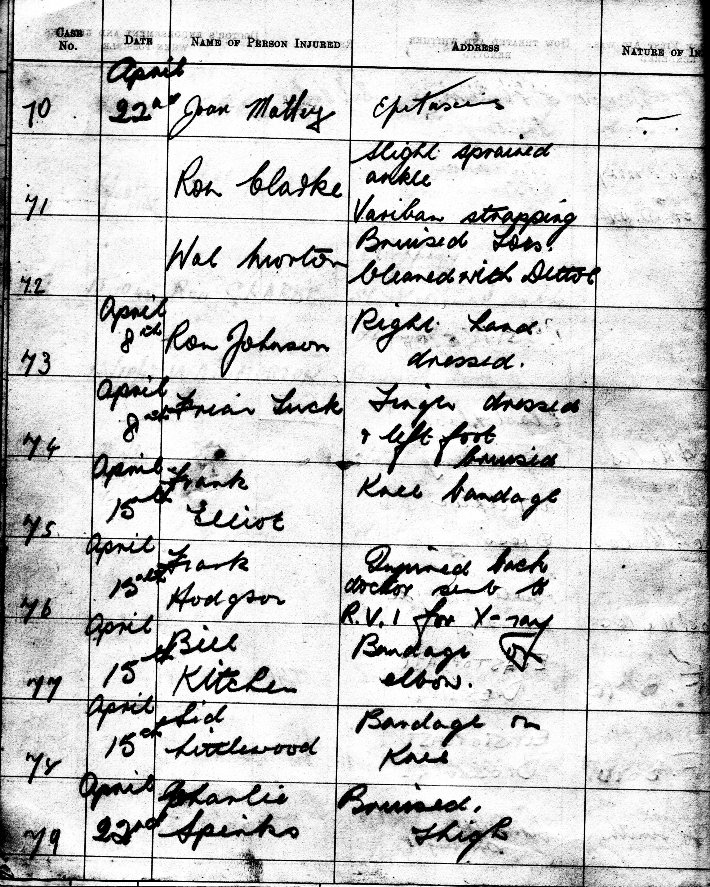 CASE No. DATE NAME OF PERSON INJURED ADDRESS NATURE OF IN
April
70 22nd Joan Mattey Epitaxis
Slight sprained
ankle
71 Ron Clarke
Variban strapping
Bruised Toes.
Wal Morton
72 Cleaned with Dettol
April Right hand
8th Ron Johnson
73 dressed.
April Friar Tuck Finger dressed
8th
74 & left foot
bruised
April Frank Knee bandage
15th
75 Elliot
April Frank Injured back
15th doctor sent to
76 Hodgson R.V.I for X-ray
April Bill Bandage on
15th
77 Kitchen elbow.
April Sid Bandage on
15th
78 Littlewood Knee
April Charlie Bruised.
79 22nd Spinks Thigh